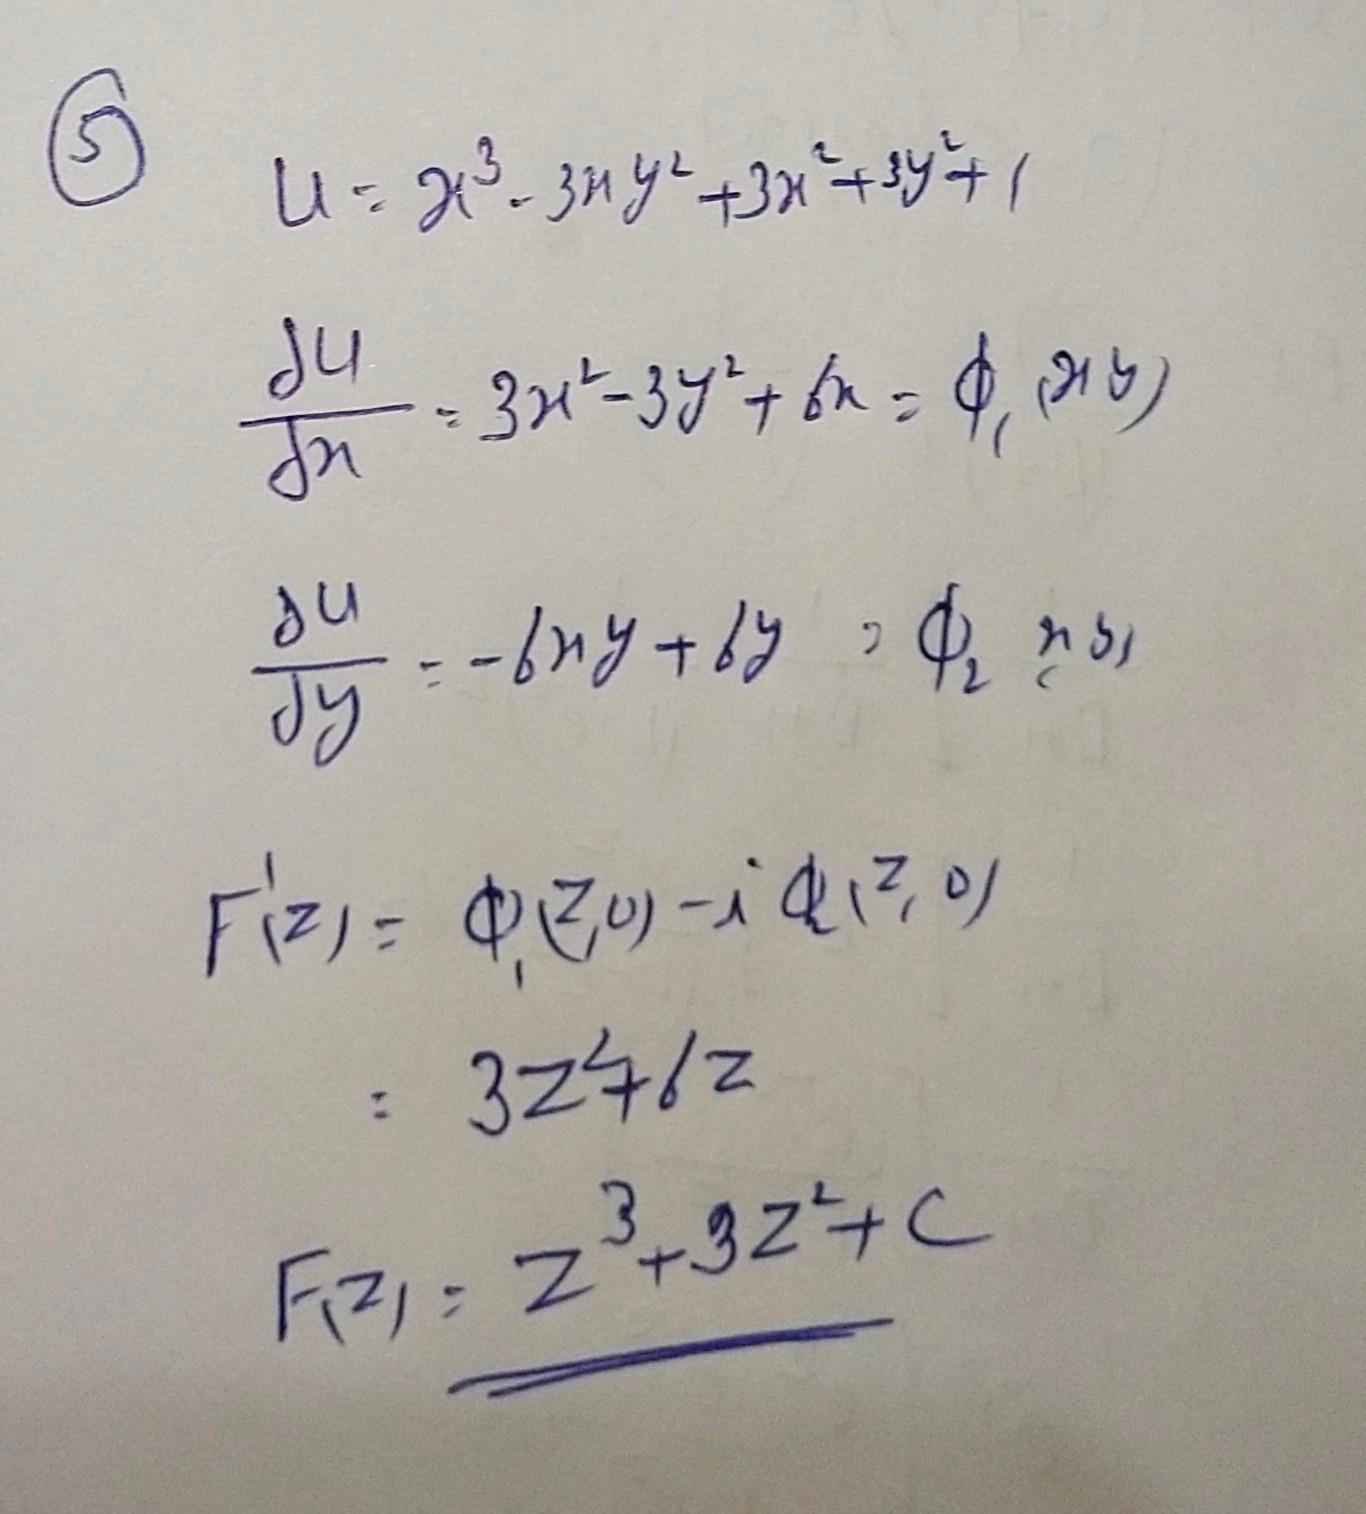 ⑤
U = x³ - 3xy² + 3x² + 3y² + 1
∂U/∂x = 3x² - 3y² + 6x = ϕ₁(x y)
∂U/∂y = -6xy + 6y = ϕ₂ (x y)
F'(z) = ϕ₁(z,0) - i ϕ₂(z,0)
= 3z² + 6z
F(z) = z³ + 3z² + C